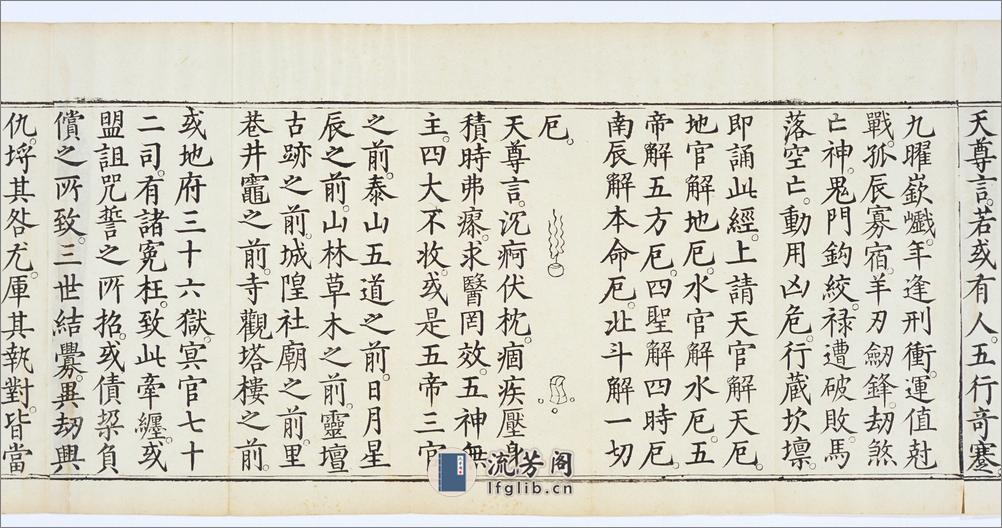 天尊言。若或有人。五行奇蹇。
九曜嶔巇。年逢刑衝。運值尅
戰。孤辰寡宿。羊刃劒鋒。劫煞
亡神。鬼門鈎絞。禄遭破敗。馬
落空亡。動用凶危。行藏坎壈。
即誦此經。上請天官解天厄。
地官解地厄。水官解水厄。五
帝解五方厄。四聖解四時厄。
南辰解本命厄。北斗解一切
厄。
天尊言。沉痾伏枕。痼疾壓身。
積時弗瘳。求醫罔效。五神無
主。四大不收。或是五帝三官
之前。泰山五道之前。日月星
辰之前。山林草木之前。靈壇
古跡之前。城隍社廟之前。里
巷井竈之前。寺觀塔樓之前。
或地府三十六獄。冥官七十
二司。有諸寃枉。致此牽纏。或
盟詛咒誓之所招。或債梁負
償之所致。三世結釁。異劫興
仇。埒其咎尤。厙其執對。皆當
流芳阁
lfglib.cn